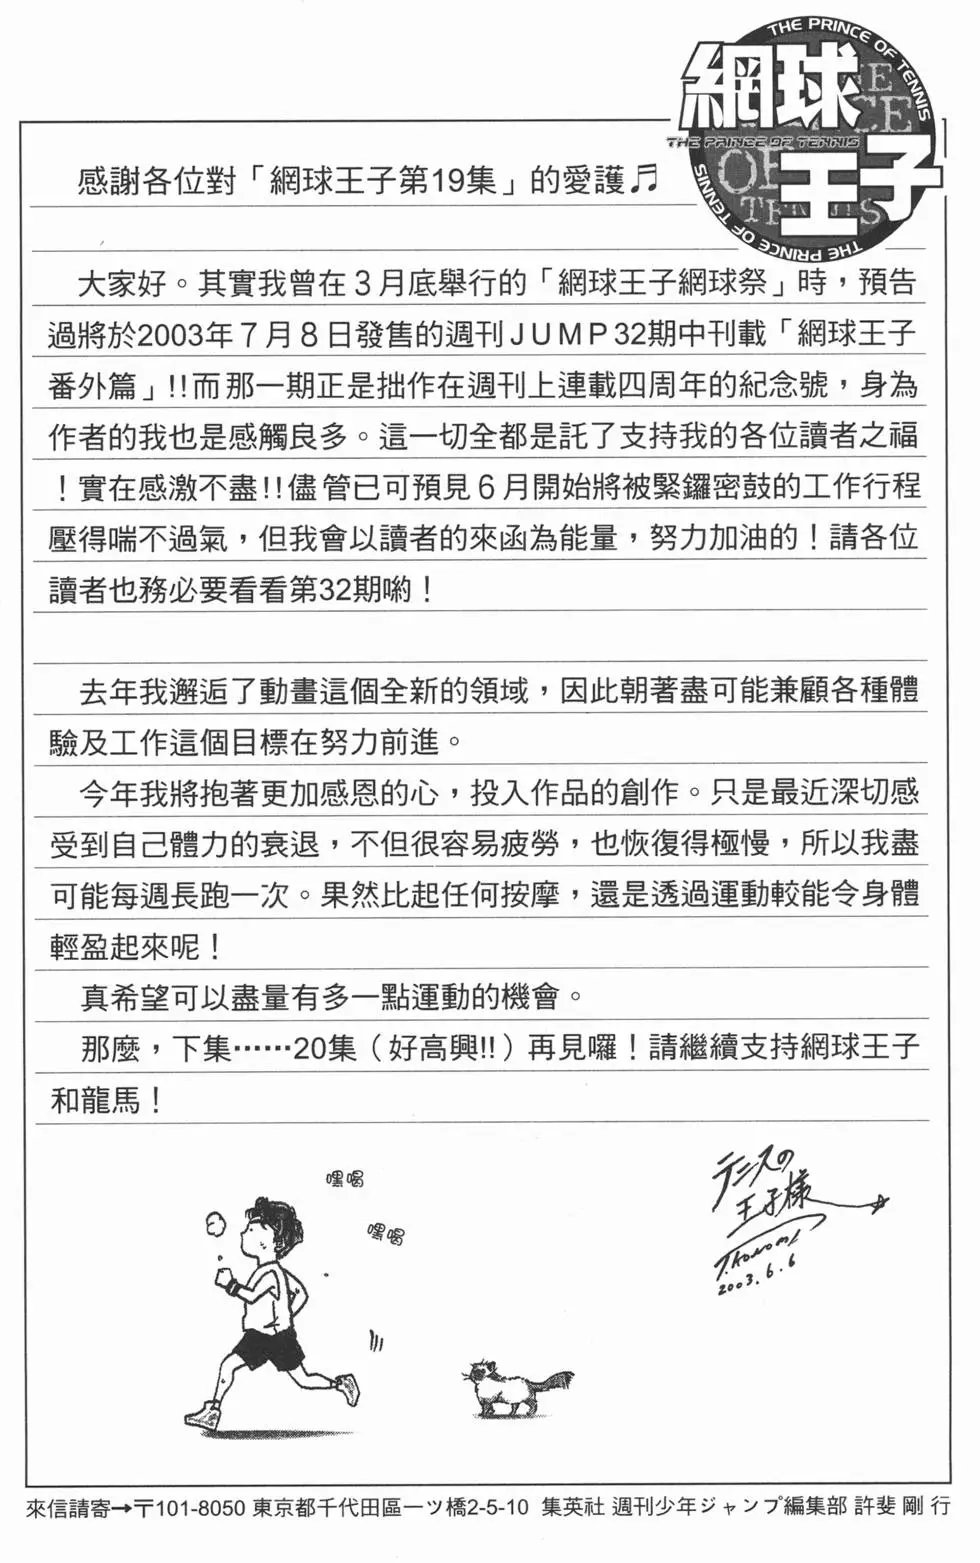 THE PRINCE OF TENNIS
網球
THE PRINCE OF TENNIS
王子
THE PRINCE OF TENNIS
感謝各位對「網球王子第19集」的愛護♬
大家好。其實我曾在3月底舉行的「網球王子網球祭」時，預告
過將於2003年7月8日發售的週刊JUMP32期中刊載「網球王子
番外篇」!!而那一期正是拙作在週刊上連載四周年的紀念號，身為
作者的我也是感觸良多。這一切全都是託了支持我的各位讀者之福
！實在感激不盡!!儘管已可預見6月開始將被緊鑼密鼓的工作行程
壓得喘不過氣，但我會以讀者的來函為能量，努力加油的！請各位
讀者也務必要看看第32期喲！
去年我邂逅了動畫這個全新的領域，因此朝著盡可能兼顧各種體
驗及工作這個目標在努力前進。
今年我將抱著更加感恩的心，投入作品的創作。只是最近深切感
受到自己體力的衰退，不但很容易疲勞，也恢復得極慢，所以我盡
可能每週長跑一次。果然比起任何按摩，還是透過運動較能令身體
輕盈起來呢！
真希望可以盡量有多一點運動的機會。
那麼，下集……20集（好高興!!）再見囉！請繼續支持網球王子
和龍馬！
嘿喝
嘿喝
テニスの
王子様
T.Konomi
2003.6.6
來信請寄→〒101-8050 東京都千代田區一ツ橋2-5-10 集英社 週刊少年ジャンプ編集部 許斐 剛 行